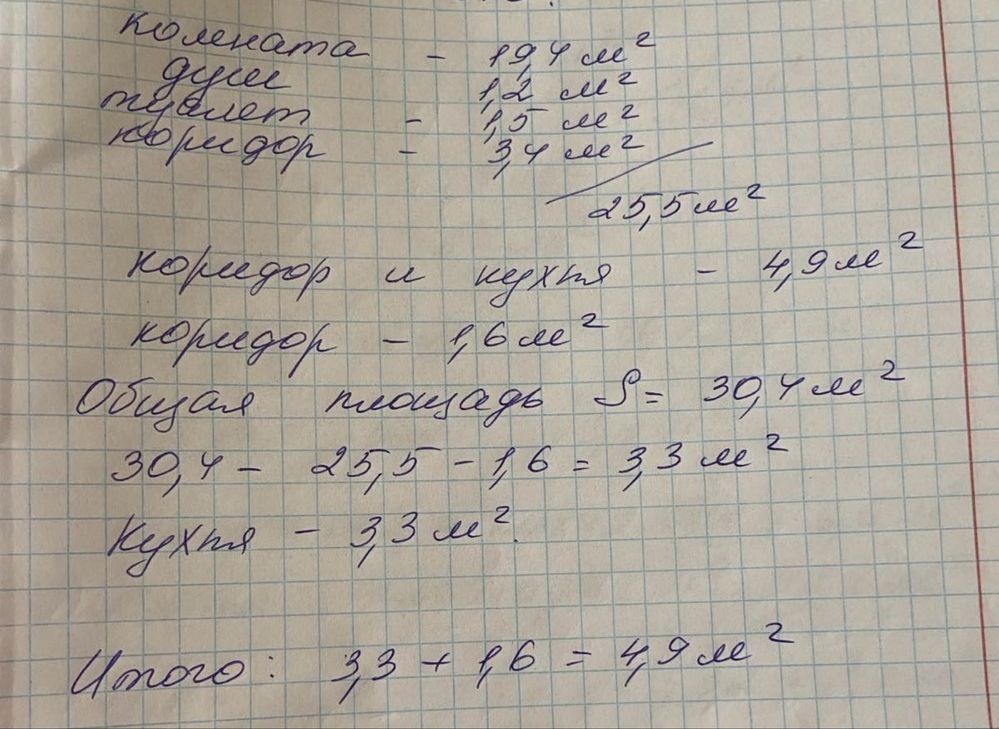 комната - 19,4 м²
душ 1,2 м²
туалет - 1,5 м²
коридор - 3,4 м²
25,5 м²
коридор и кухня - 4,9 м²
коридор - 1,6 м²
Общая площадь S = 30,4 м²
30,4 - 25,5 - 1,6 = 3,3 м²
Кухня - 3,3 м².
Итого: 3,3 + 1,6 = 4,9 м²